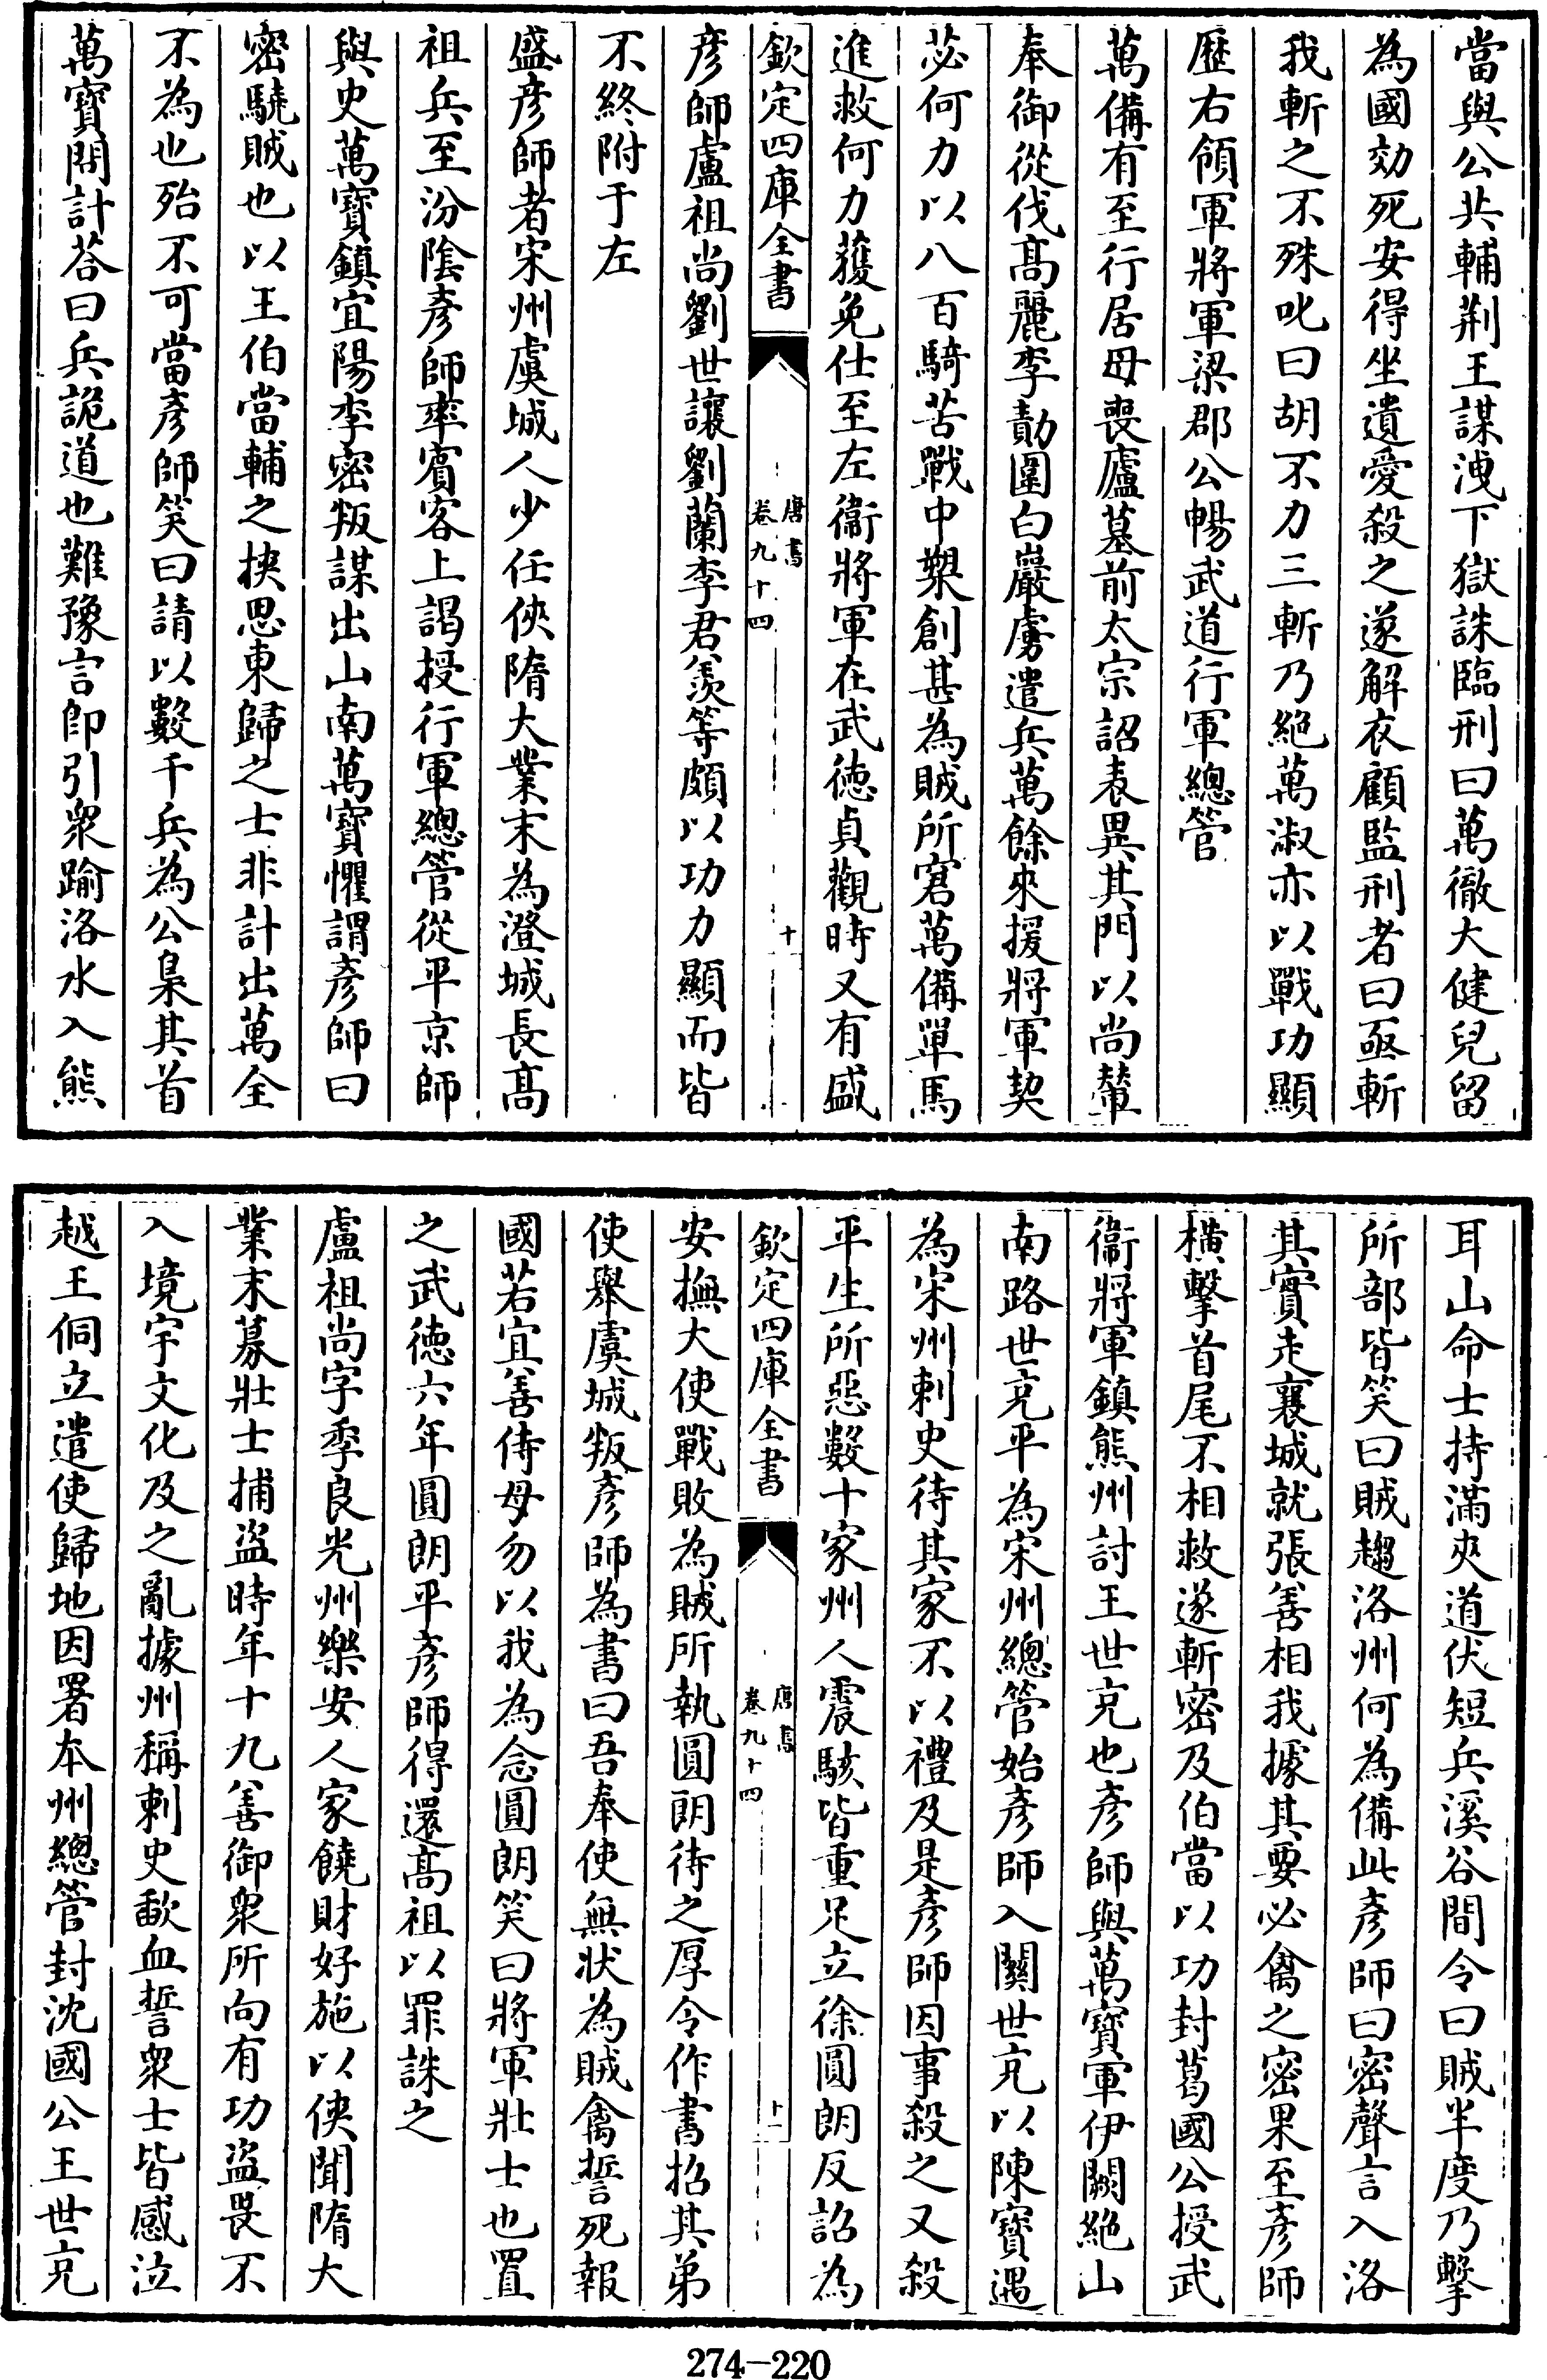 當與公共輔荆王謀洩下獄誅臨刑曰萬徹大健兒留
為國効死安得坐遺愛殺之遂解衣顧監刑者曰亟斬
我斬之不殊叱曰胡不力三斬乃絶萬淑亦以戰功顯
歷右領軍將軍梁郡公暢武道行軍總管
萬備有至行居母喪廬墓前太宗詔表異其門以尚輦
奉御從伐髙麗李勣圍白巖虜遣兵萬餘來援將軍契
苾何力以八百騎苦戰中槊創甚為賊所窘萬備單馬
進救何力獲免仕至左衞將軍在武徳貞觀時又有盛
欽定四庫全書
唐書
卷九十四
十
彦師盧祖尚劉世讓劉蘭李君羨等頗以功力顯而皆
不終附于左
盛彦師者宋州虞城人少任俠隋大業末為澄城長髙
祖兵至汾陰彦師率賓客上謁授行軍總管從平京師
與史萬寶鎮宜陽李密叛謀出山南萬寶懼謂彦師曰
密驍賊也以王伯當輔之挾思東歸之士非計出萬全
不為也殆不可當彦師笑曰請以數千兵為公梟其首
萬寶問計荅曰兵詭道也難豫言即引衆踰洛水入熊
耳山命士持滿夾道伏短兵溪谷間令曰賊半度乃擊
所部皆笑曰賊趨洛州何為備此彦師曰密聲言入洛
其實走襄城就張善相我據其要必禽之密果至彦師
横擊首尾不相救遂斬密及伯當以功封葛國公授武
衞將軍鎮熊州討王世充也彦師與萬寶軍伊闕絶山
南路世充平為宋州總管始彦師入關世充以陳寶遇
為宋州刺史待其家不以禮及是彦師因事殺之又殺
平生所惡數十家州人震駭皆重足立徐圓朗反詔為
欽定四庫全書
唐書
卷九十四
十一
安撫大使戰敗為賊所執圓朗待之厚令作書招其弟
使舉虞城叛彦師為書曰吾奉使無狀為賊禽誓死報
國若宜善侍母勿以我為念圓朗笑曰將軍壯士也置
之武徳六年圓朗平彦師得還髙祖以罪誅之
盧祖尚字季良光州樂安人家饒財好施以俠聞隋大
業末募壯士捕盗時年十九善御衆所向有功盗畏不
入境宇文化及之亂據州稱刺史歃血誓衆士皆感泣
越王侗立遣使歸地因署本州總管封沈國公王世充
274-220